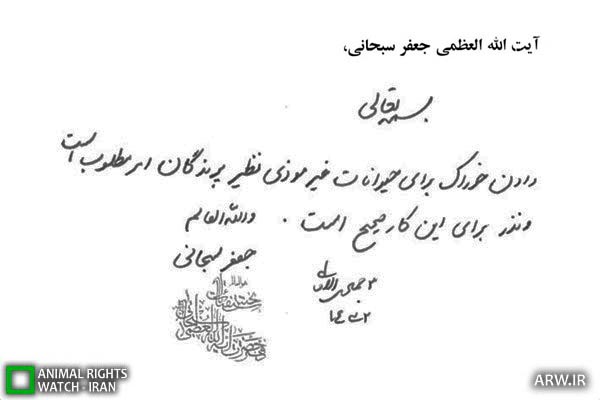 آیت الله العظمی جعفر سبحانی،
بسمه تعالی
دادن خوراک برای حیوانات غیر موذی نظیر پرندگان امر مطلوب است
و نذر برای این کار صحیح است . والله العالم
جعفر سبحانی
ANIMAL RIGHTS
WATCH - IRAN
ARW.IR